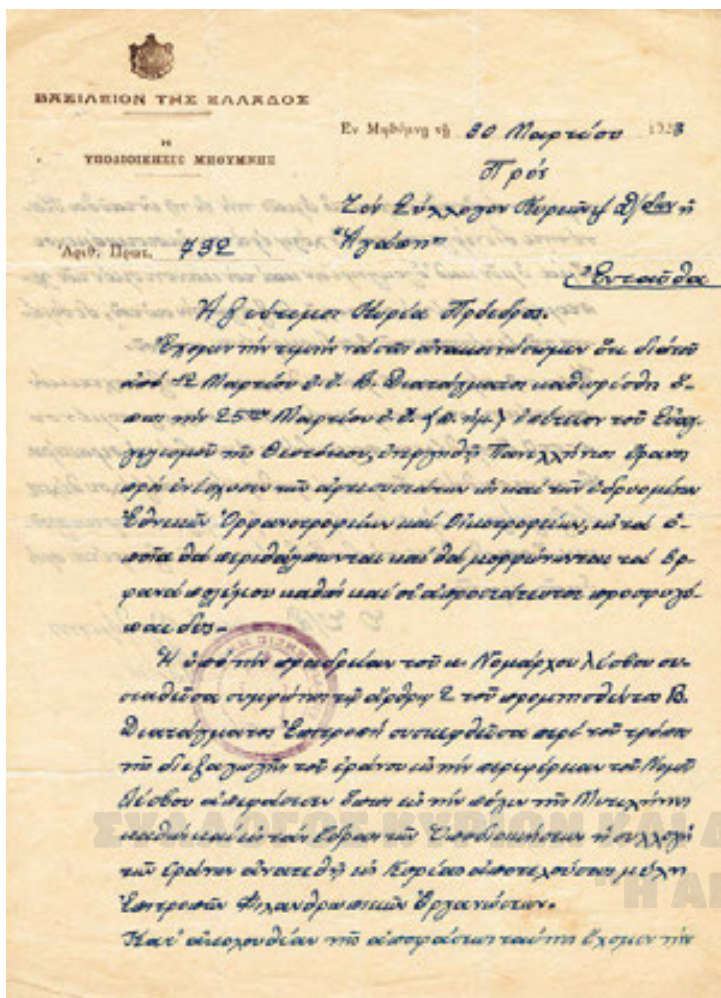 ΒΑΣΙΛΕΙΟΝ ΤΗΣ ΕΛΛΑΔΟΣ
Η
ΥΠΟΔΙΟΙΚΗΣΙΣ ΜΗΘΥΜΝΗΣ
Εν Μηθύμνη τῇ 30 Μαρτίου 1923
Πρός
Τόν Σύλλογον Κυριῶν
"Ἀγάπη"
Ἐνταῦθα
Ἀριθ. Πρωτ. 732
Ἀξιότιμοι Κυρία Πρόεδρος.
Ἔχομεν τήν τιμήν νά σᾶς ἀνακοινώσωμεν ὅτι διά τοῦ
ἀπό 12 Μαρτίου ἐ.ἔ. Β. Διατάγματος καθωρίσθη ὅ-
πως τήν 25ην Μαρτίου ἐ.ἔ. (π. ἡμ.) ἑπέτειον τοῦ Εὐαγ-
γελισμοῦ τῆς Θεοτόκου, ἐνεργηθῇ Πανελλήνιος ἔρανος
πρός ἐνίσχυσιν τῶν ὡς καί τῶν ἱδρυομένων
Ἐθνικῶν Ὀρφανοτροφείων καί Οἰκοτροφείων, εἰς τά ὁ-
ποῖα θά περιθάλπωνται καί θά μορφώνωνται τά ὀρ-
φανά πολέμου καθώς καί αἱ ἀπροστάτευτοι προσφυγο-
πούλες.-
Ἡ ὑπό τήν προεδρείαν τοῦ κ. Νομάρχου Λέσβου συ-
σταθεῖσα συμφώνως τῷ ἄρθρῳ 2 τοῦ προμνησθέντος Β.
Διατάγματος Ἐπιτροπή συσκεφθεῖσα περί τοῦ τρόπου
τῆς διεξαγωγῆς τοῦ ἐράνου εἰς τήν περιφέρειαν τοῦ Νομοῦ
Λέσβου ἀπεφάσισεν ὅπως εἰς τήν πόλιν τῆς Μυτιλήνης
καθώς καί εἰς τάς ἕδρας τῶν Ὑποδιοικήσεων ἡ συλλογή
τῶν ἐράνων ἀνατεθῇ εἰς Κυρίας ἀποτελούσας μέλη
Ἐπιτροπῶν Φιλανθρωπικῶν Ὀργανώσεων.
Κατ' ἀκολουθίαν τῆς ἀποφάσεως ταύτης ἔχομεν τήν
ΣΥΛΛΟΓΟΣ ΚΥΡΙΩΝ ΚΑΙ Δ
"Η ΑΓ